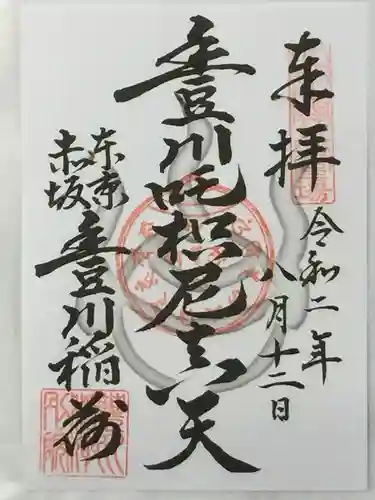 奉拝
令和二年
八月十二日
豊川吒枳尼真天
東京
赤坂
豊川稲荷